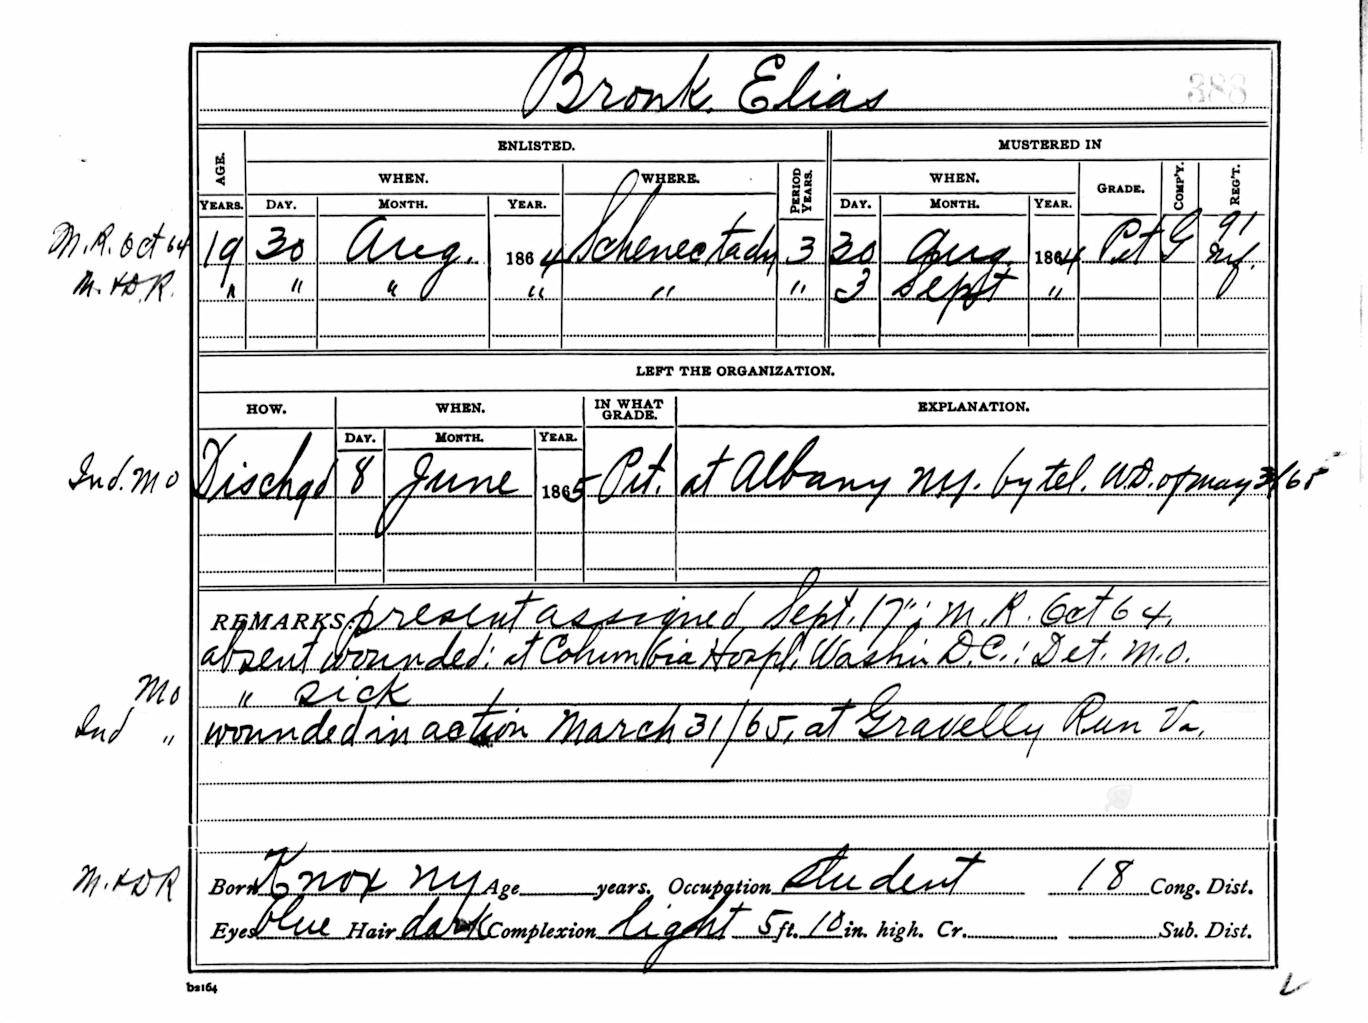 Bronk, Elias 388
ENLISTED. MUSTERED IN
AGE. WHEN. WHERE. PERIOD YEARS. WHEN. GRADE. COMP'Y. REG'T.
YEARS. DAY. MONTH. YEAR. DAY. MONTH. YEAR.
M.R. Oct 64 19 30 Aug. 1864 Schenectady 3 30 Aug. 1864 Pvt G 91 NY.
M. & D. R. " " " " " " 3 Sept "
LEFT THE ORGANIZATION.
HOW. WHEN. IN WHAT GRADE. EXPLANATION.
DAY. MONTH. YEAR.
Ind. M O Dischgd 8 June 1865 Pvt. at Albany NY. by tel. W.D. of May 3/65
REMARKS: present assigned Sept. 17": M.R. Oct 64.
absent wounded: at Columbia Hospl. Washn D.C.: Det. M.O.
MO " sick
Ind " wounded in action March 31/65, at Gravelly Run Va.
M. & D R Born Knox NY Age years. Occupation student 18 Cong. Dist.
Eyes blue Hair dark Complexion light 5 ft. 10 in. high. Cr. Sub. Dist.
b2164